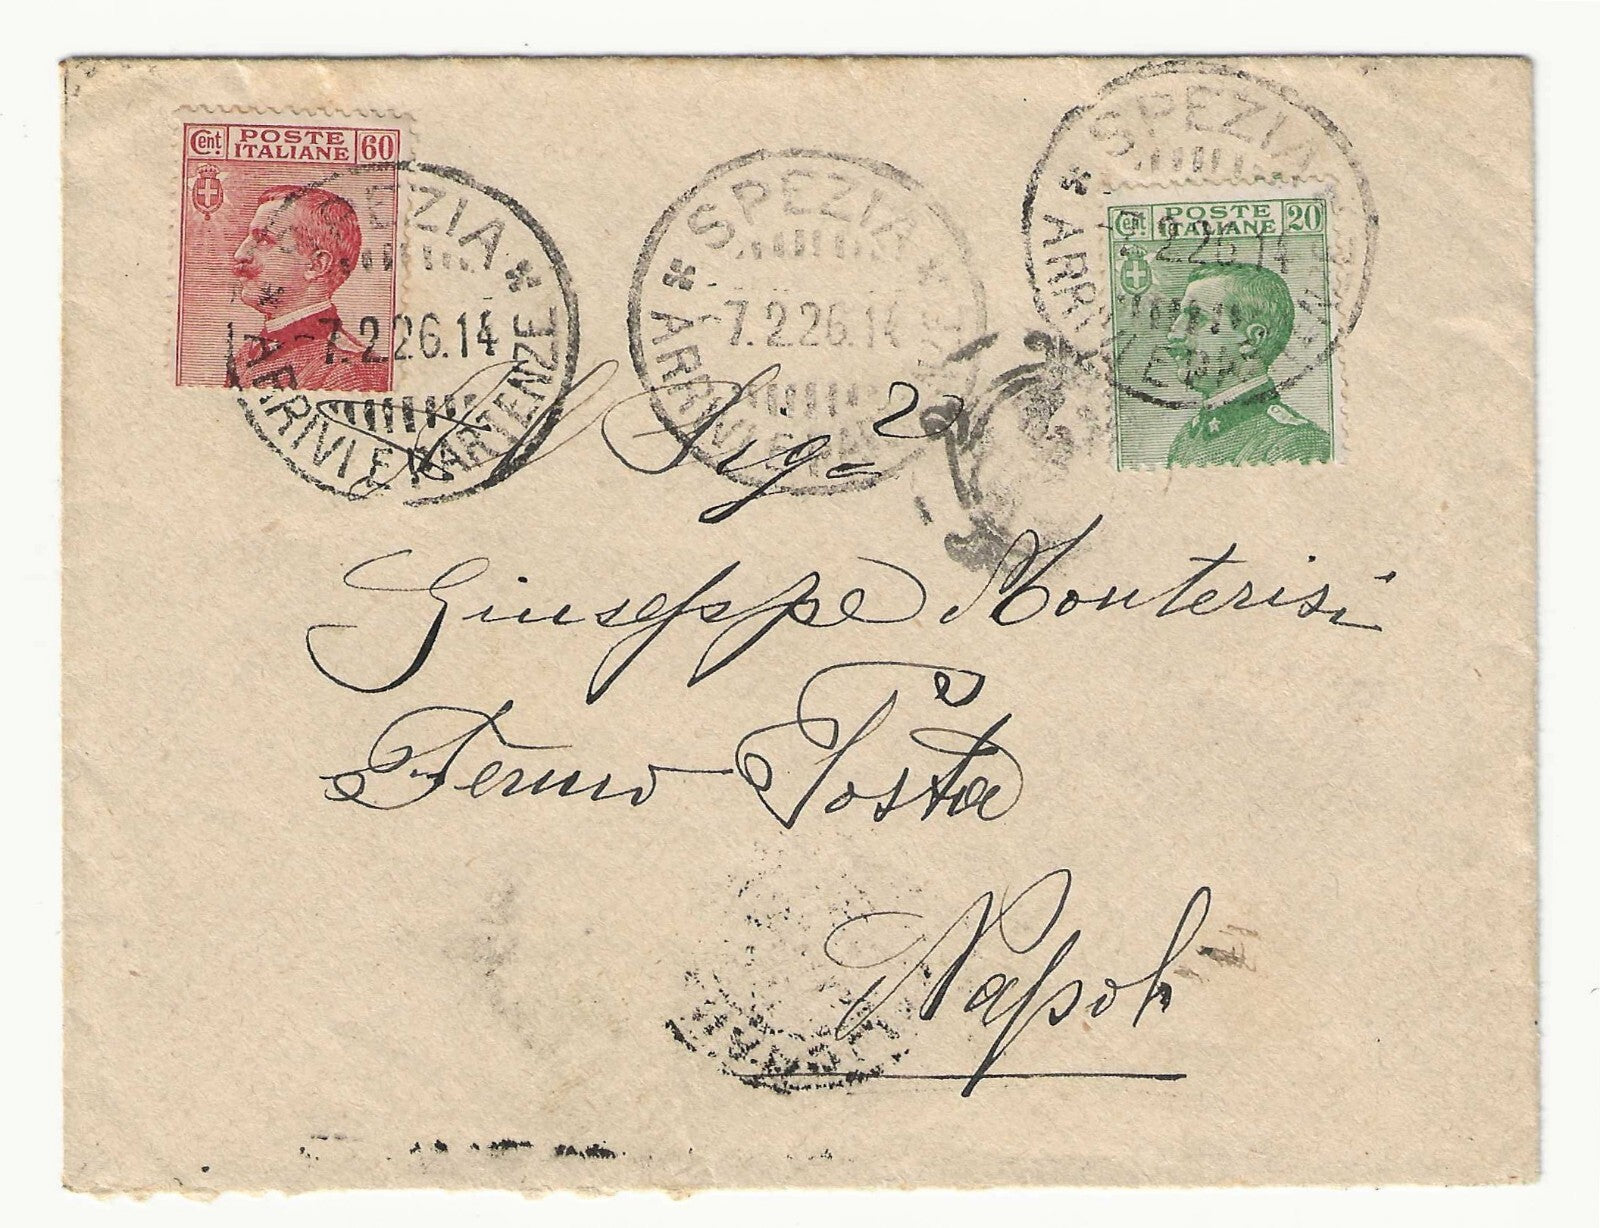 Cent. POSTE ITALIANE 60
SPEZIA
7.2.26.14
ARRIVI E PARTENZE
SPEZIA
7.2.26.14
ARRIVI E PARTENZE
SPEZIA
7.2.26.14
ARRIVI E PARTENZE
Cent. POSTE ITALIANE 20
Al Sig.r
Giuseppe Monterisi
Fermo Posta
Napoli